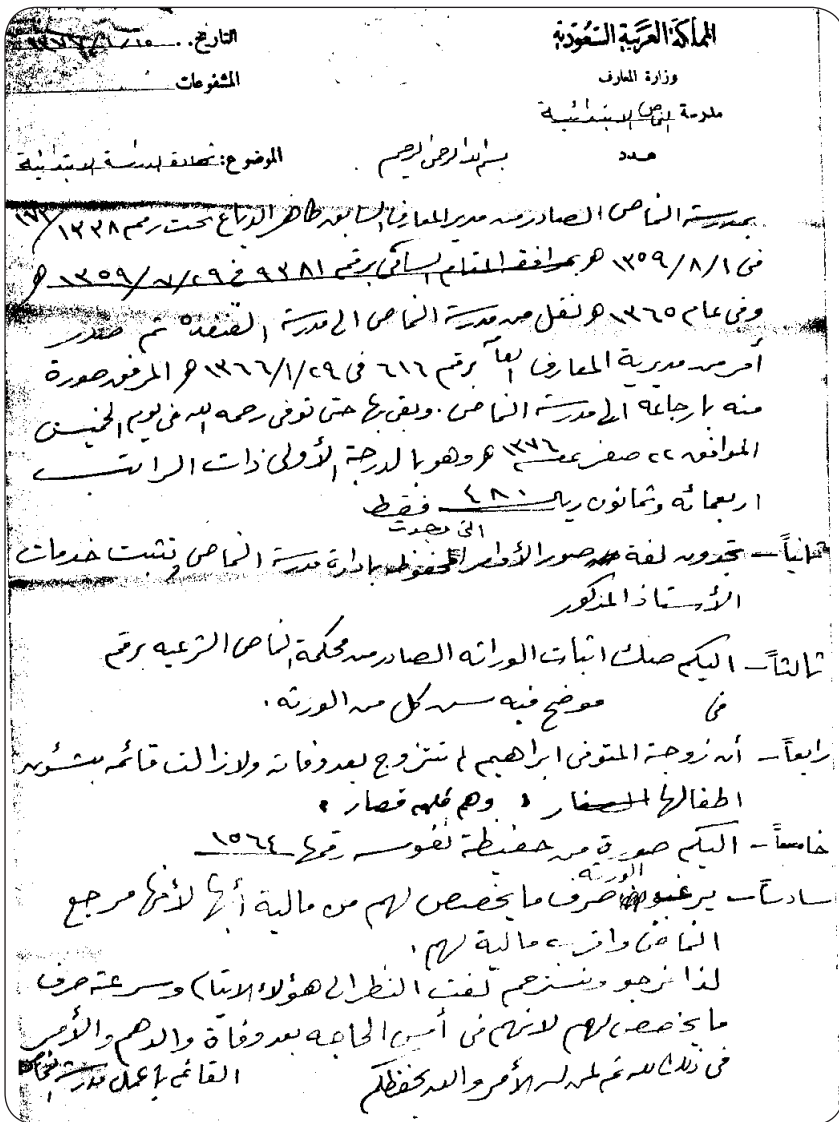 المملكة العربية السعودية
وزارة المعارف
مدرسة النماص الابتدائية
عدد
التاريخ
المشفوعات
الموضوع: شهادة الدراسة الابتدائية
بسم الله الرحمن الرحيم
بمدرسة النماص الصادر من مدير المعارف السابق طاهر الدباغ تحت رقم ١٣٣٨/١٧٣
فى ١٣٥٩/٨/١ هـ بموافقة المقام السامي برقم ٩٣٨١ في ١٣٥٩/٧/٢٩ هـ
وفى عام ١٣٦٥ هـ نقل من مدرسة النماص الى مدرسة القنفذة ثم صدر
أمر من مديرية المعارف العامة برقم ٦١٦ فى ١٣٦٦/١/٢٩ هـ المرفق صورة
منه بارجاعه الى مدرسة النماص . وبقى بها حتى توفى رحمه الله فى يوم الخميس
الموافق ٢٢ صفر عام ١٣٧٦ هـ وهو بالدرجة الأولى ذات الراتب
اربعمائه وثمانون ريال ٤٨٠ فقط
ثانياً – تجدون لفة صور الأوامر التى وجدت المحفوظه بادارة مدرسة النماص وتثبت خدمات
الأستاذ المذكور
ثالثاً – اليكم صك اثبات الوراثه الصادر من محكمة النماص الشرعيه برقم
فى موضح فيه سن كل من الورثه .
رابعاً – أن زوجة المتوفى ابراهيم لم تتزوج بعد وفاته ولا زالت قائمه بشئون
اطفالها الصغار وهم قصار .
خامساً – اليكم صورة من حفيظة نفوسه رقمها ١٥٦٤
سادساً – يرغبون الورثه صرف ما يخصص لهم من مالية أبها لأنها مرجع
النماص واقرب مالية لهم .
لذا نرجو ونسترحم لفت النظر الى هؤلاء الايتام وسرعة صرف
ما يخصص لهم لانهم فى أمس الحاجه بعد وفاة والدهم والأمر
فى ذلك لله ثم لمن له الأمر والله يحفظكم
القائم بأعمال مدرسة النماص